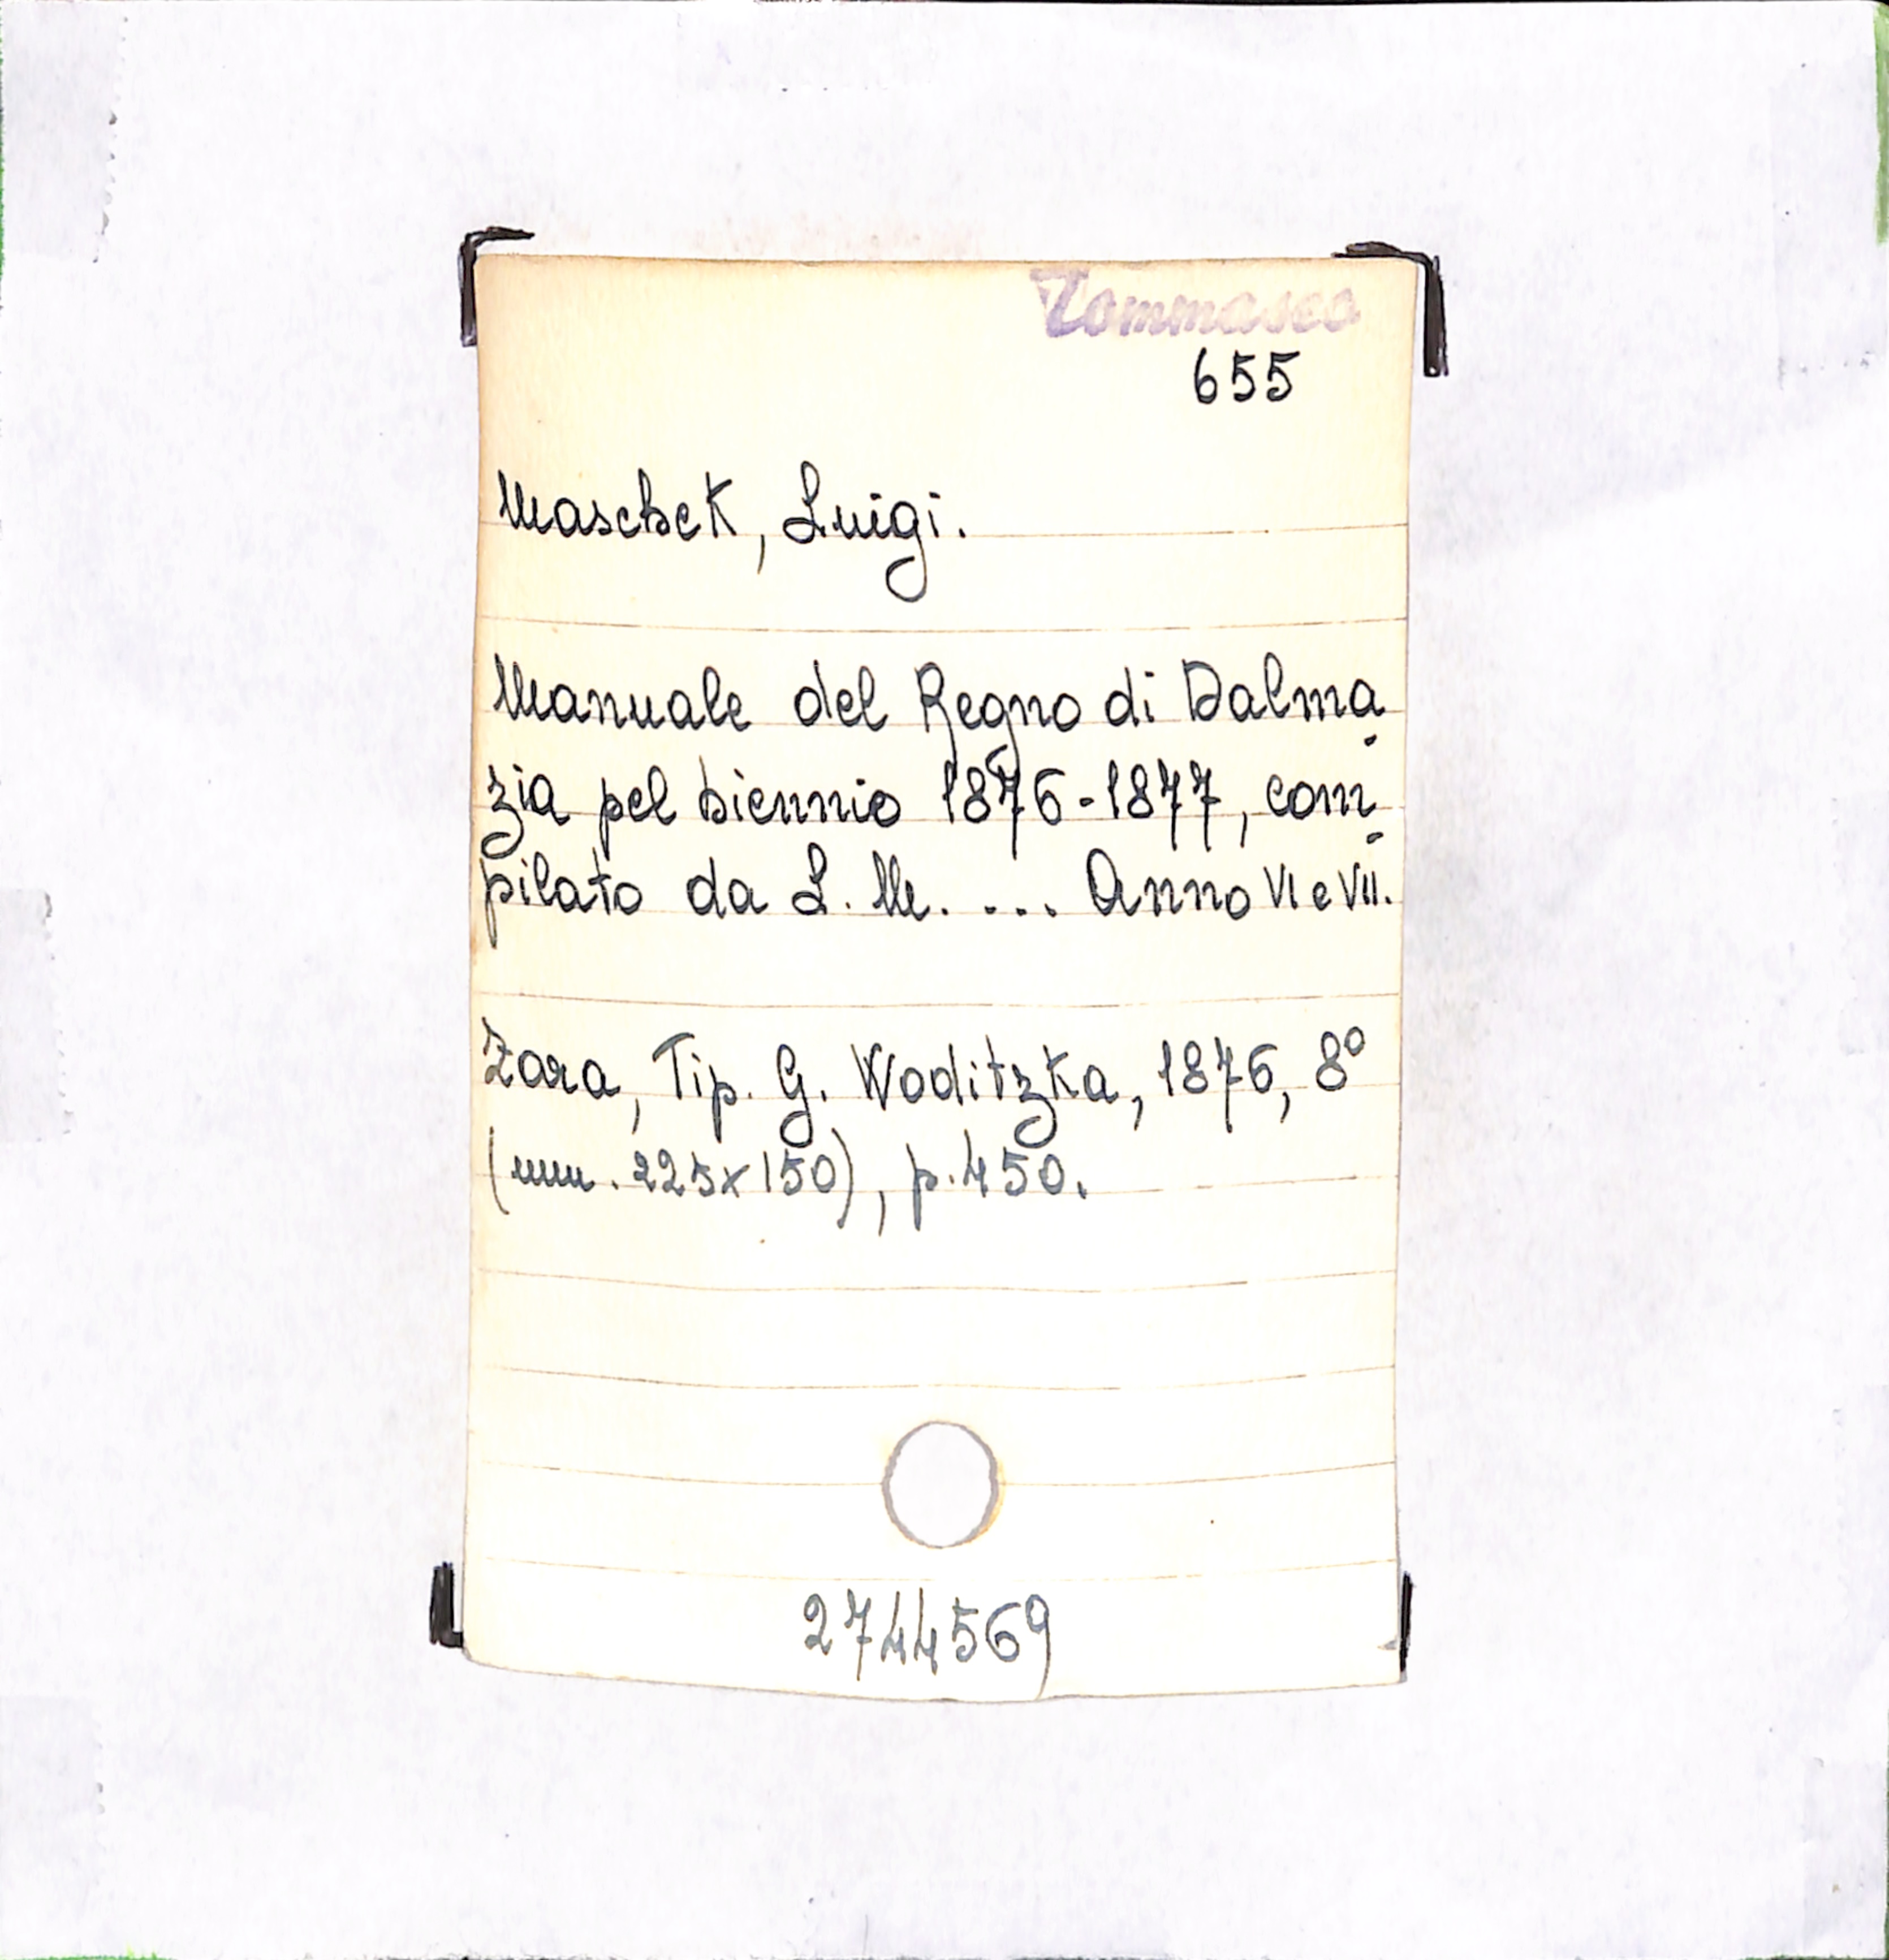 Tommaseo
655
Maschek, Luigi.
Manuale del Regno di Dalma-
zia pel biennio 1876-1877, com-
pilato da L. M. ... Anno VI e VII.
Zara, Tip. G. Woditzka, 1876, 8°
(mm. 225x150), p. 450.
2744569